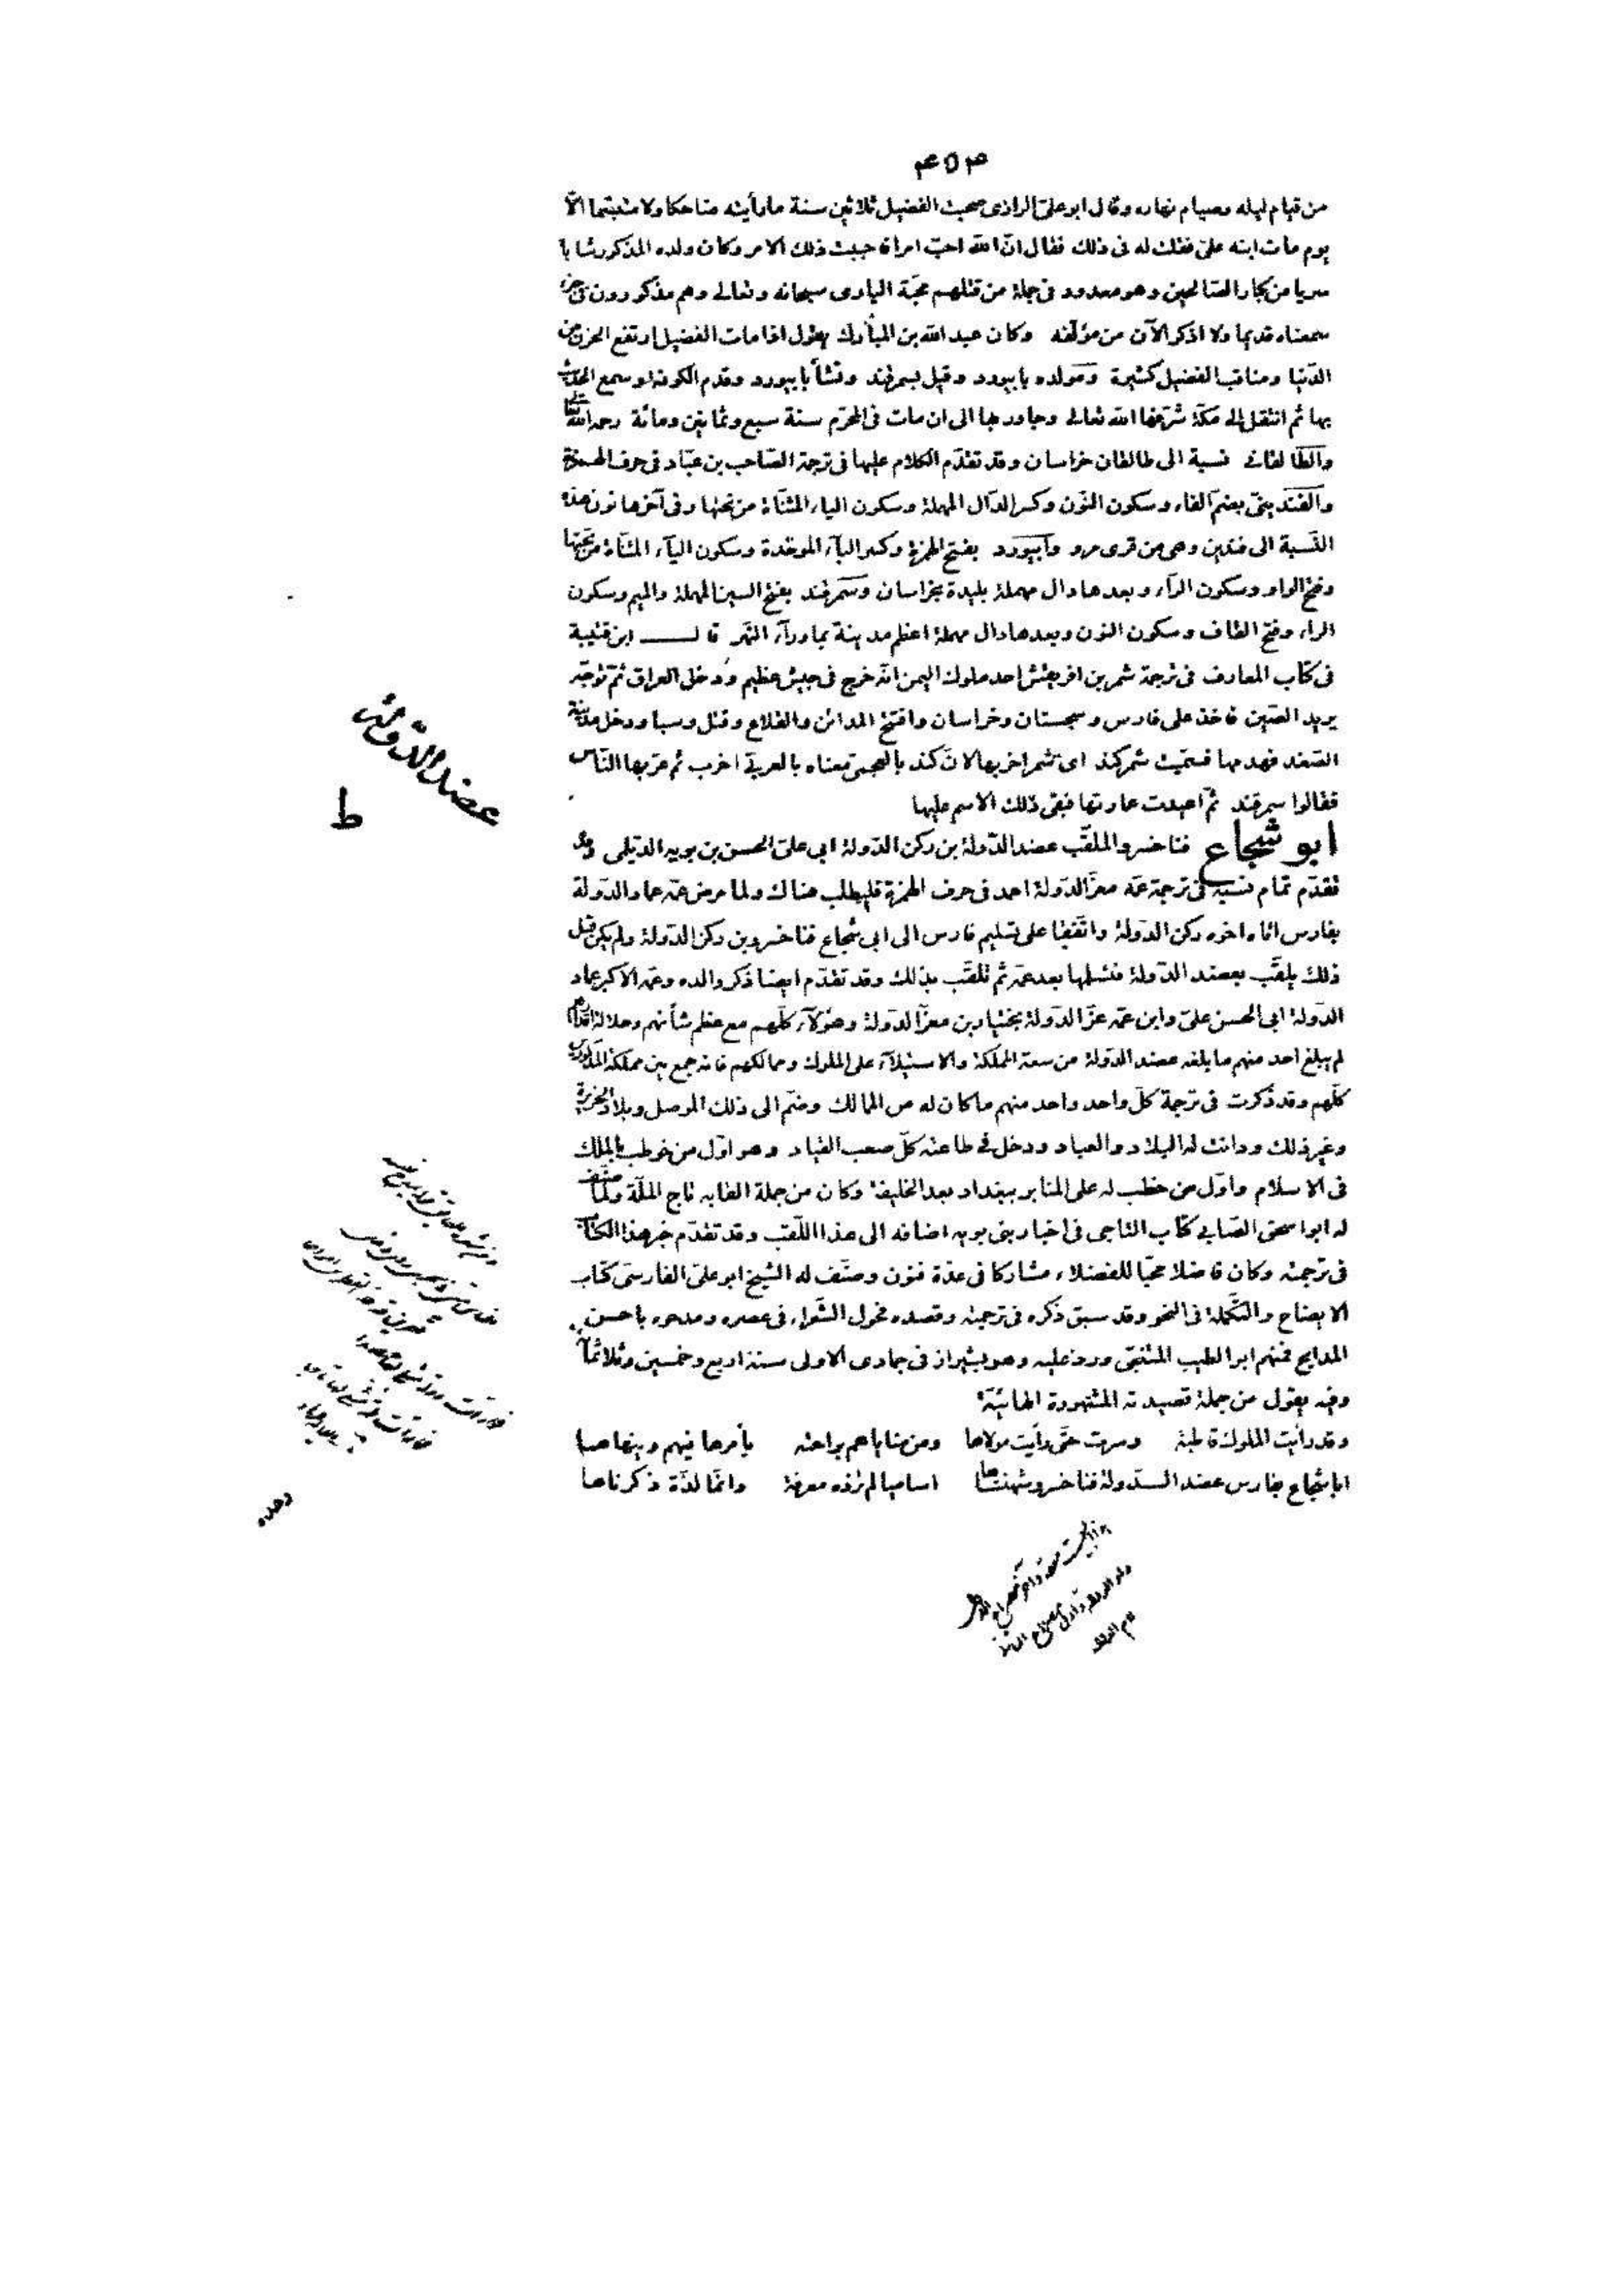 ٤٥٣
من قيام ليله وصيام نهاره وقال ابو علىّ الرازى صحبت الفضيل ثلاثين سنة ما رأيته ضاحكا ولا متبتسما الّا
يوم مات ابنه علىّ فقلت له فى ذلك فقال انّ الله احبّ امرا فاحببت ذلك الامر وكان ولده المذكور شابا
سريا من كبار الصّالحين وهو معدود فى جملة من قتلهم محبّة البارى سبحانه وتعالى وهم مذكورون فى جزء
سمعناه قديما ولا اذكر الآن من مؤلّفه وكان عبد الله بن المبارك يقول اذا مات الفضيل ارتفع الحزن من
الدّنيا ومناقب الفضيل كثيرة ومولده بابيورد وقيل بسمرقند ونشأ بابيورد وقدم الكوفة وسمع الحديث
بها ثم انتقل الى مكّة شرّفها الله تعالى وجاور بها الى ان مات فى المحرّم سنة سبع وثمانين ومائة رحمه الله تعالى
والطّالقانى نسبة الى طالقان خراسان وقد تقدّم الكلام عليها فى ترجمة الصّاحب بن عبّاد فى حرف الهمزة
والفندينىّ بضمّ الفاء وسكون النّون وكسر الدّال المهملة وسكون الياء المثنّاة من تحتها وفى آخرها نون هذه
النّسبة الى فندين وهى من قرى مرو وابيورد بفتح الهمزة وكسر البآء الموحّدة وسكون اليآء المثنّاة من تحتها
وفتح الواو وسكون الرآء وبعدها دال مهملة بليدة بخراسان وسمرقند بفتح السين المهملة والميم وسكون
الراء وفتح القاف وسكون النون وبعدها دال مهملة اعظم مدينة بماورآء النّهر قال ابن قتيبة
فى كتاب المعارف فى ترجمة شمر بن افريقش احد ملوك اليمن انّه خرج فى جيش عظيم ودخل العراق ثمّ توجّه
يريد الصّين فاخذ على فارس وسجستان وخراسان وافتتح المدائن والقلاع وقتل وسبا ودخل مدينة
الصّغد فهدمها فسمّيت شمركند اى شمر اخربها لانّ كند بالعجمىّ معناه بالعربىّ اخرب ثم عرّبها النّاس
فقالوا سمرقند ثمّ اعيدت عمارتها فبقى ذلك الاسم عليها
عضد الدّولة
ط
ابو شجاع فناخسرو الملقّب عضد الدّولة بن ركن الدّولة ابى علىّ الحسن بن بويه الديلمى وقد
تقدّم تمام نسبه فى ترجمة عمّه معزّ الدّولة احمد فى حرف الهمزة فليطلب هناك ولما مرض عمّه عماد الدّولة
بفارس اتاه اخوه ركن الدّولة واتّفقا على تسليم فارس الى ابى شجاع فناخسرو بن ركن الدّولة ولم يكن قبل
ذلك يلقّب بعضد الدّولة فتسلّمها بعد عمّه ثم تلقّب بذلك وقد تقدّم ايضا ذكر والده وعمّه الاكبر عماد
الدّولة ابى الحسن علىّ وابن عمّه عزّ الدّولة بختيار بن معزّ الدّولة وهؤلآء كلّهم مع عظم شأنهم وجلالة اقدارهم
لم يبلغ احد منهم ما بلغه عضد الدّولة من سعة المملكة والاستيلآء على الملوك وممالكهم فانه جمع بين مملكة المذكورين
كلّهم وقد ذكرت فى ترجمة كلّ واحد واحد منهم ما كان له من الممالك وضمّ الى ذلك الموصل وبلاد الجزيرة
وغير ذلك ودانت له البلاد والعباد ودخل فى طاعته كلّ صعب القياد وهو اوّل من خوطب بالملك
فى الاسلام واوّل من خطب له على المنابر ببغداد بعد الخليفة وكان من جملة القابه تاج الملّة ولمّا صنّف
له ابو اسحق الصّابى كتاب التاجى فى اخبار بنى بويه اضافه الى هذا اللّقب وقد تقدّم خبر هذا الكتاب
فى ترجمته وكان فاضلا محبّا للفضلاء مشاركا فى عدّة فنون وصنّف له الشيخ ابو علىّ الفارسىّ كتاب
الايضاح والتّكملة فى النحو وقد سبق ذكره فى ترجمته وقصده فحول الشّعراء فى عصره ومدحوه باحسن
المدايح فمنهم ابو الطيب المتنبّى ورد عليه وهو بشيراز فى جمادى الاولى سنة اربع وخمسين وثلاثمآئة
وفيه يقول من جملة قصيدته المشهورة الهائيّة
وقد رأيت الملوك قاطبة وسرت حتّى رأيت مولاها ومن مناياهم براحته يأمرها فيهم وينهاها
ابا شجاع بفارس عضد الدّولة فناخسرو شهنشاها اساميا لم تزده معرفة وانّما لذّة ذكرناها